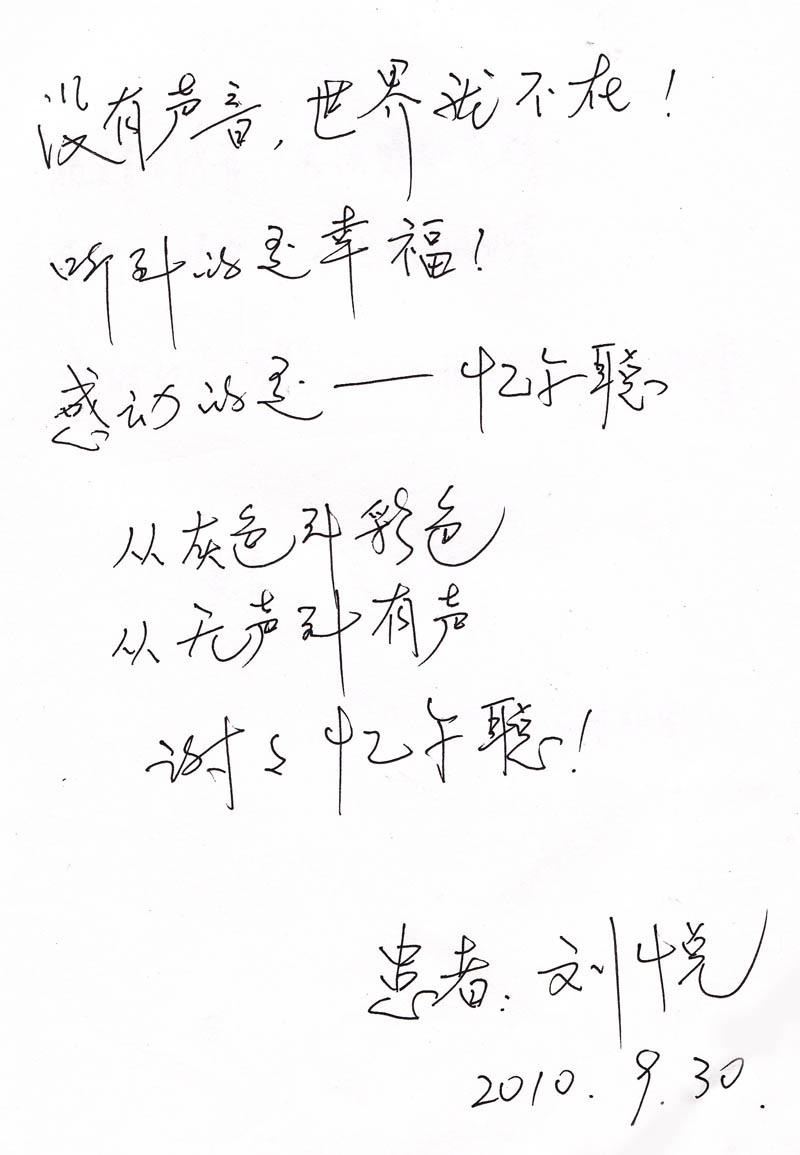 没有声音，世界我不在！
听到的是幸福！
感动的是——忆午聪
从灰色到彩色
从无声到有声
谢谢忆午聪！
患者：刘悦
2010.9.30.